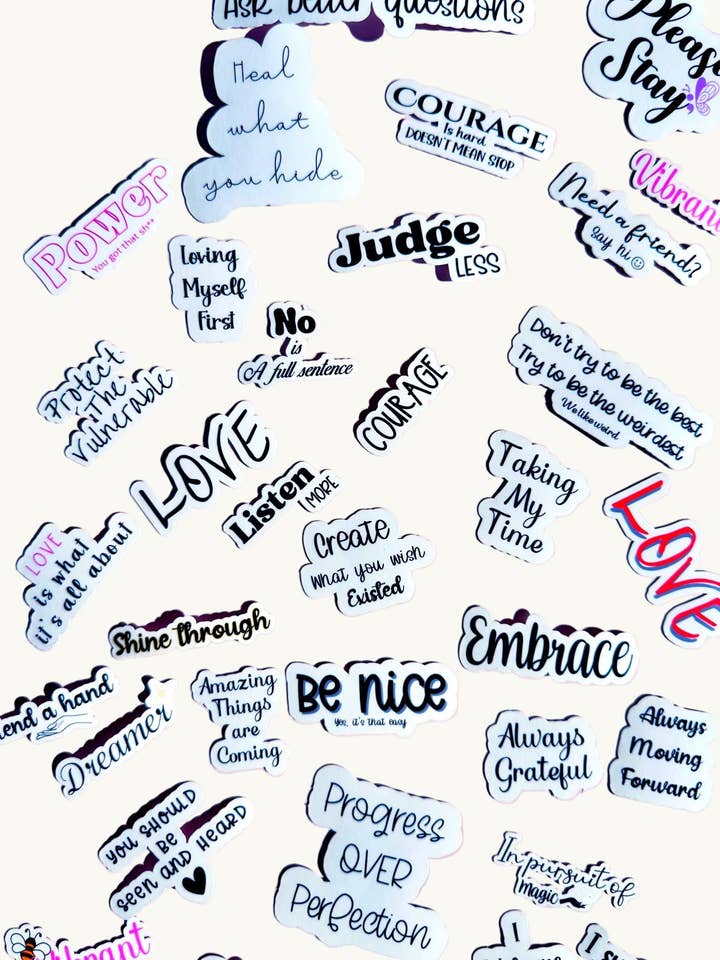 Ask better questions
Please
Stay
Heal
what
you hide
COURAGE
Is hard
DOESN'T MEAN STOP
Vibrant
Power
You got that sh**
Need a friend?
Say hi
Loving
Myself
First
Judge
LESS
No
is
A full sentence
Protect
The
Vulnerable
COURAGE
Don't try to be the best
Try to be the weirdest
We like weird
LOVE
Listen
MORE
Taking
My
Time
LOVE
LOVE
is what
it's all about
Create
What you wish
Existed
Shine through
Embrace
lend a hand
Dreamer
Amazing
Things
are
Coming
Be nice
Yes, it's that easy
Always
Grateful
Always
Moving
Forward
you should
be
seen and heard
Progress
OVER
Perfection
In pursuit of
magic
Vibrant
I